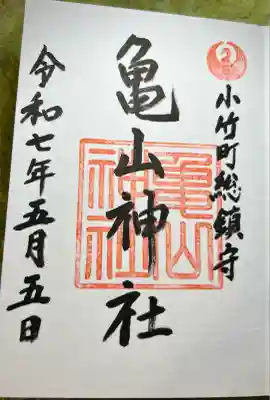 小竹町総鎮守
亀山神社
亀山
神社
令和七年五月五日